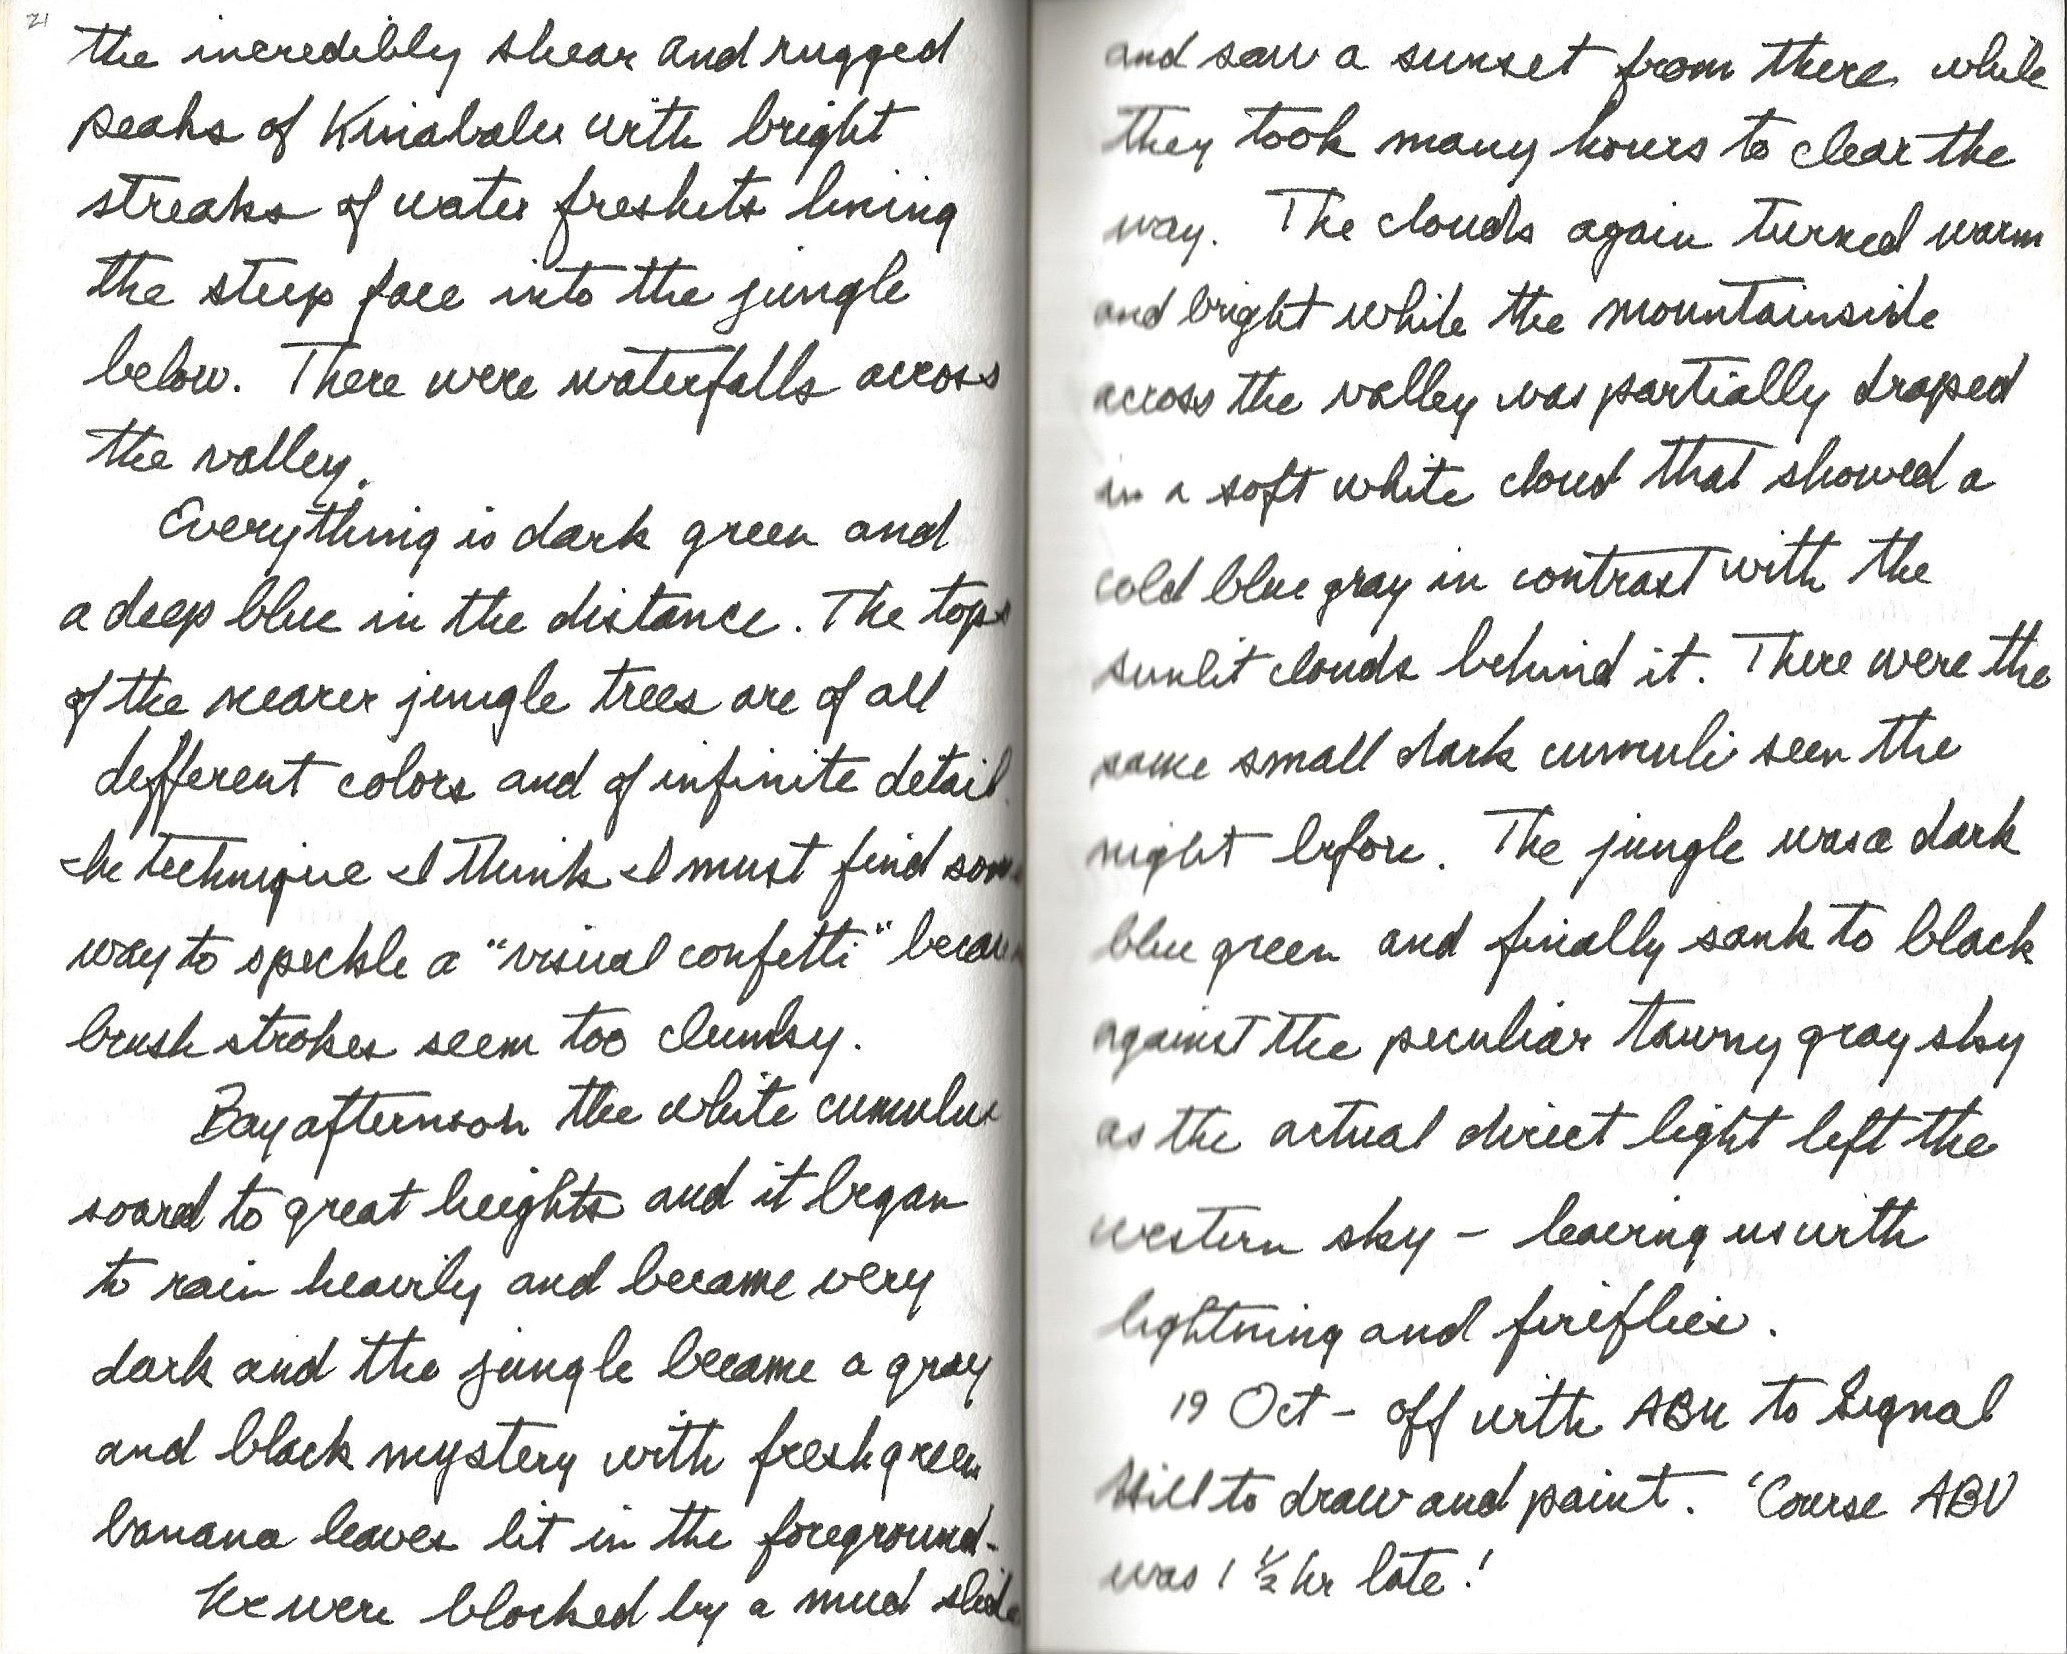 21
the incredibly shear and rugged
peaks of Kinabalu with bright
streaks of water freshets lining
the steep face into the jungle
below. There were waterfalls across
the valley.
Everything is dark green and
a deep blue in the distance. The tops
of the nearer jungle trees are of all
different colors and of infinite detail.
In technique I think I must find some
way to speckle a "visual confetti" because
brush strokes seem too clumsy.
By afternoon the white cumulus
soared to great heights and it began
to rain heavily and became very
dark and the jungle became a gray
and black mystery with fresh green
banana leaves lit in the foreground-
We were blocked by a mud slide
and saw a sunset from there while
they took many hours to clear the
way. The clouds again turned warm
and bright while the mountainside
across the valley was partially draped
in a soft white cloud that showed a
cold blue gray in contrast with the
sunlit clouds behind it. There were the
same small dark cumuli seen the
night before. The jungle was a dark
blue green and finally sank to black
against the peculiar tawny gray sky
as the actual direct light left the
western sky – leaving us with
lightning and fireflies.
19 Oct – off with ABU to Signal
Hill to draw and paint. 'Course ABU
was 1 1/2 hr late!